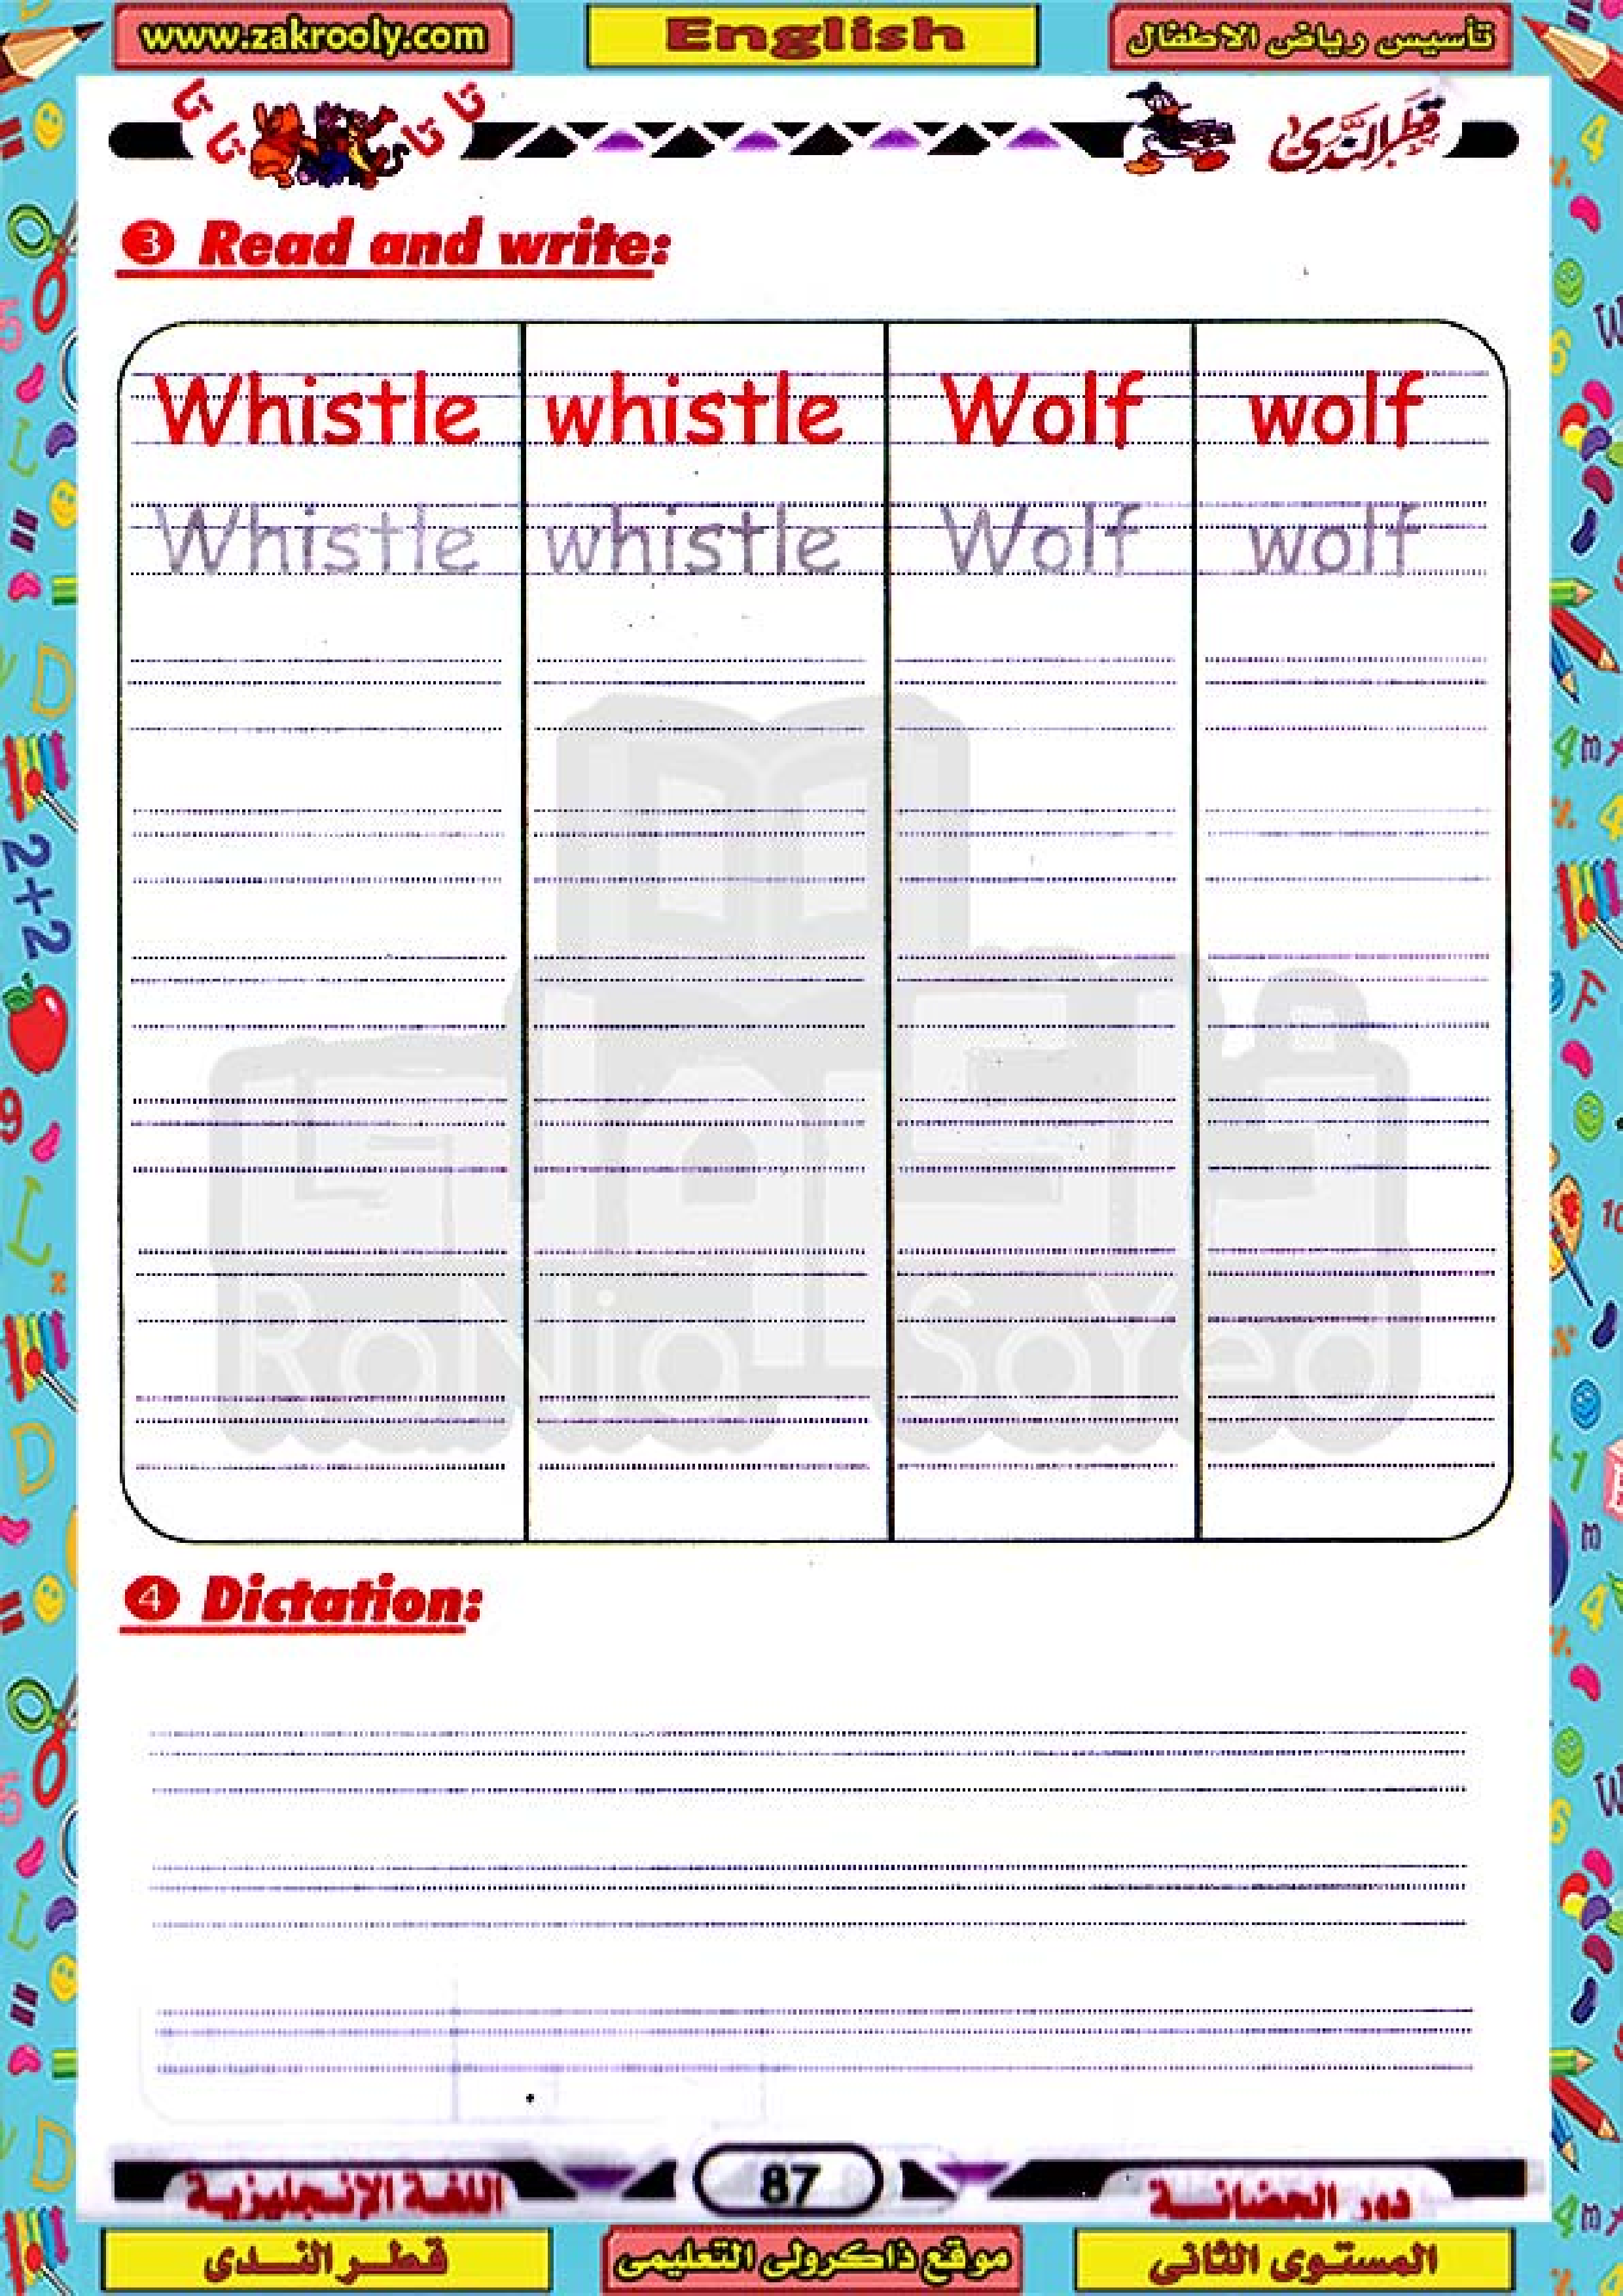 www.zakrooly.com English تأسيس رياض الاطفال
تا تا تا تا قطر الندى
3 Read and write:
Whistle whistle Wolf wolf
Whistle whistle Wolf wolf
RaNia SaYed
4 Dictation:
اللغة الإنجليزية 87 دور الحضانة
قطر الندى موقع ذاكرولى التعليمى المستوى الثانى